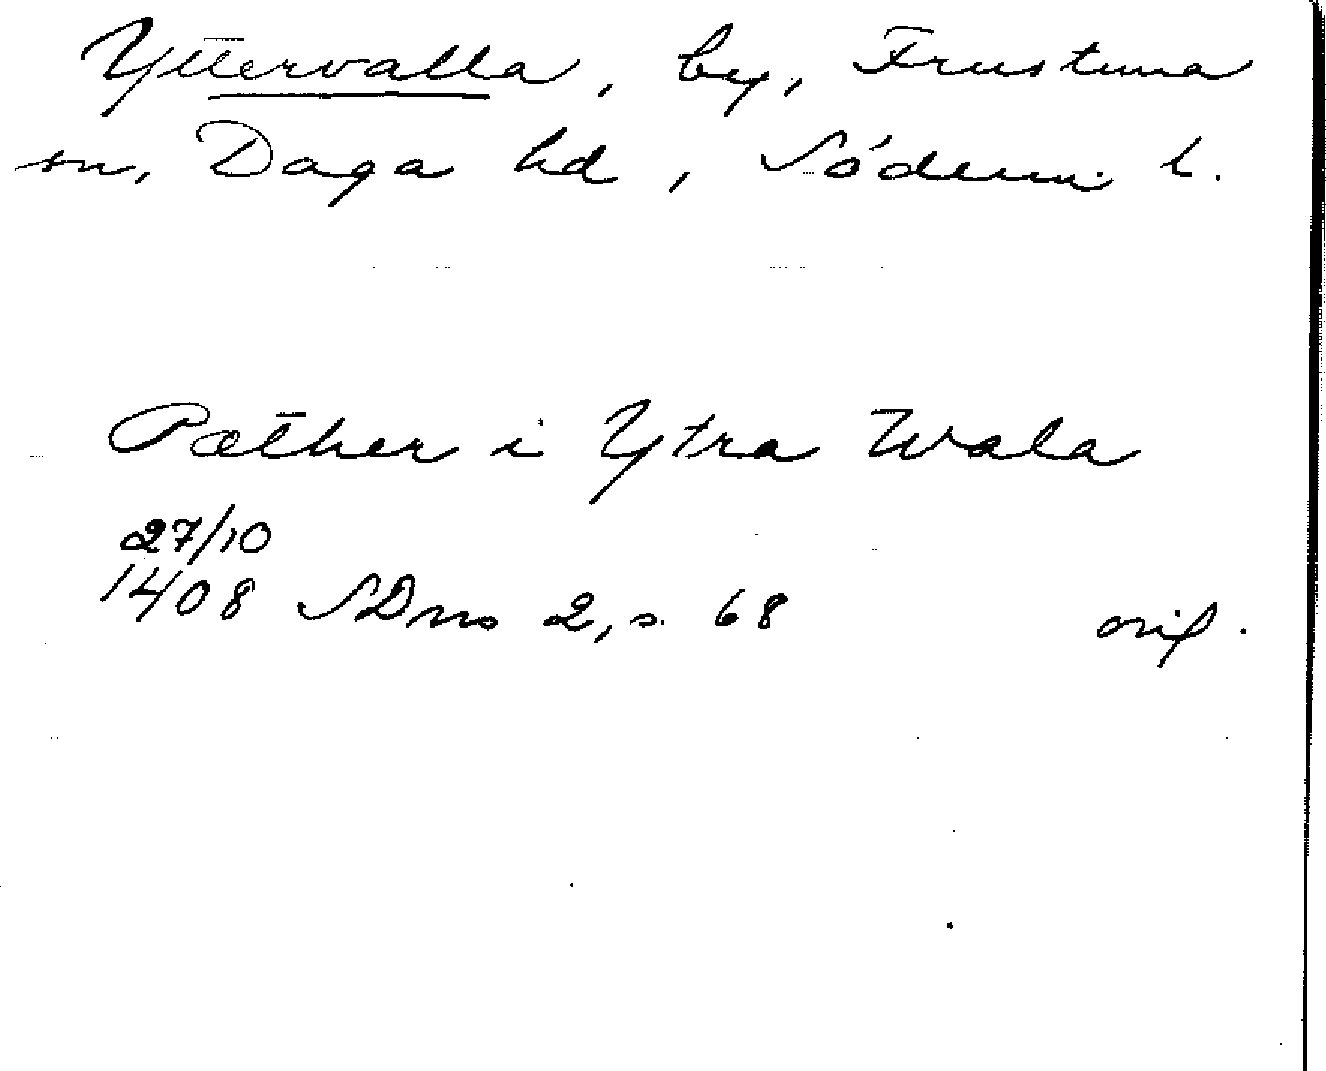 Yttervalla, by, Frustuna
sn, Daga hd, Söderm. l.
Pæther i Ytra Wala
27/10
1408 SDns 2, s. 68 orig.